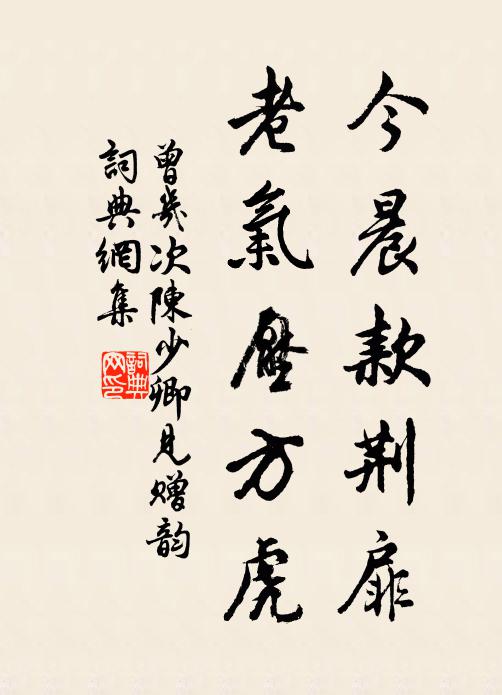 今晨款荆扉
老氣壓方虎
曾幾次陳少卿見贈韵
詞典網集
詞典網印